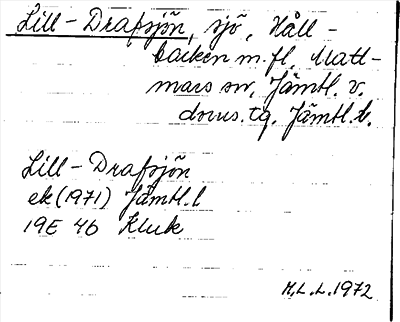 Lill-Drafsjön, sjö, Håll-
backen m.fl. Matt-
mars sn, Jämtl. v.
doms. tg. Jämtl. l.
Lill-Drafsjön
ek (1971) Jämtl. l
19E 4b Kluk
H.L.L. 1972